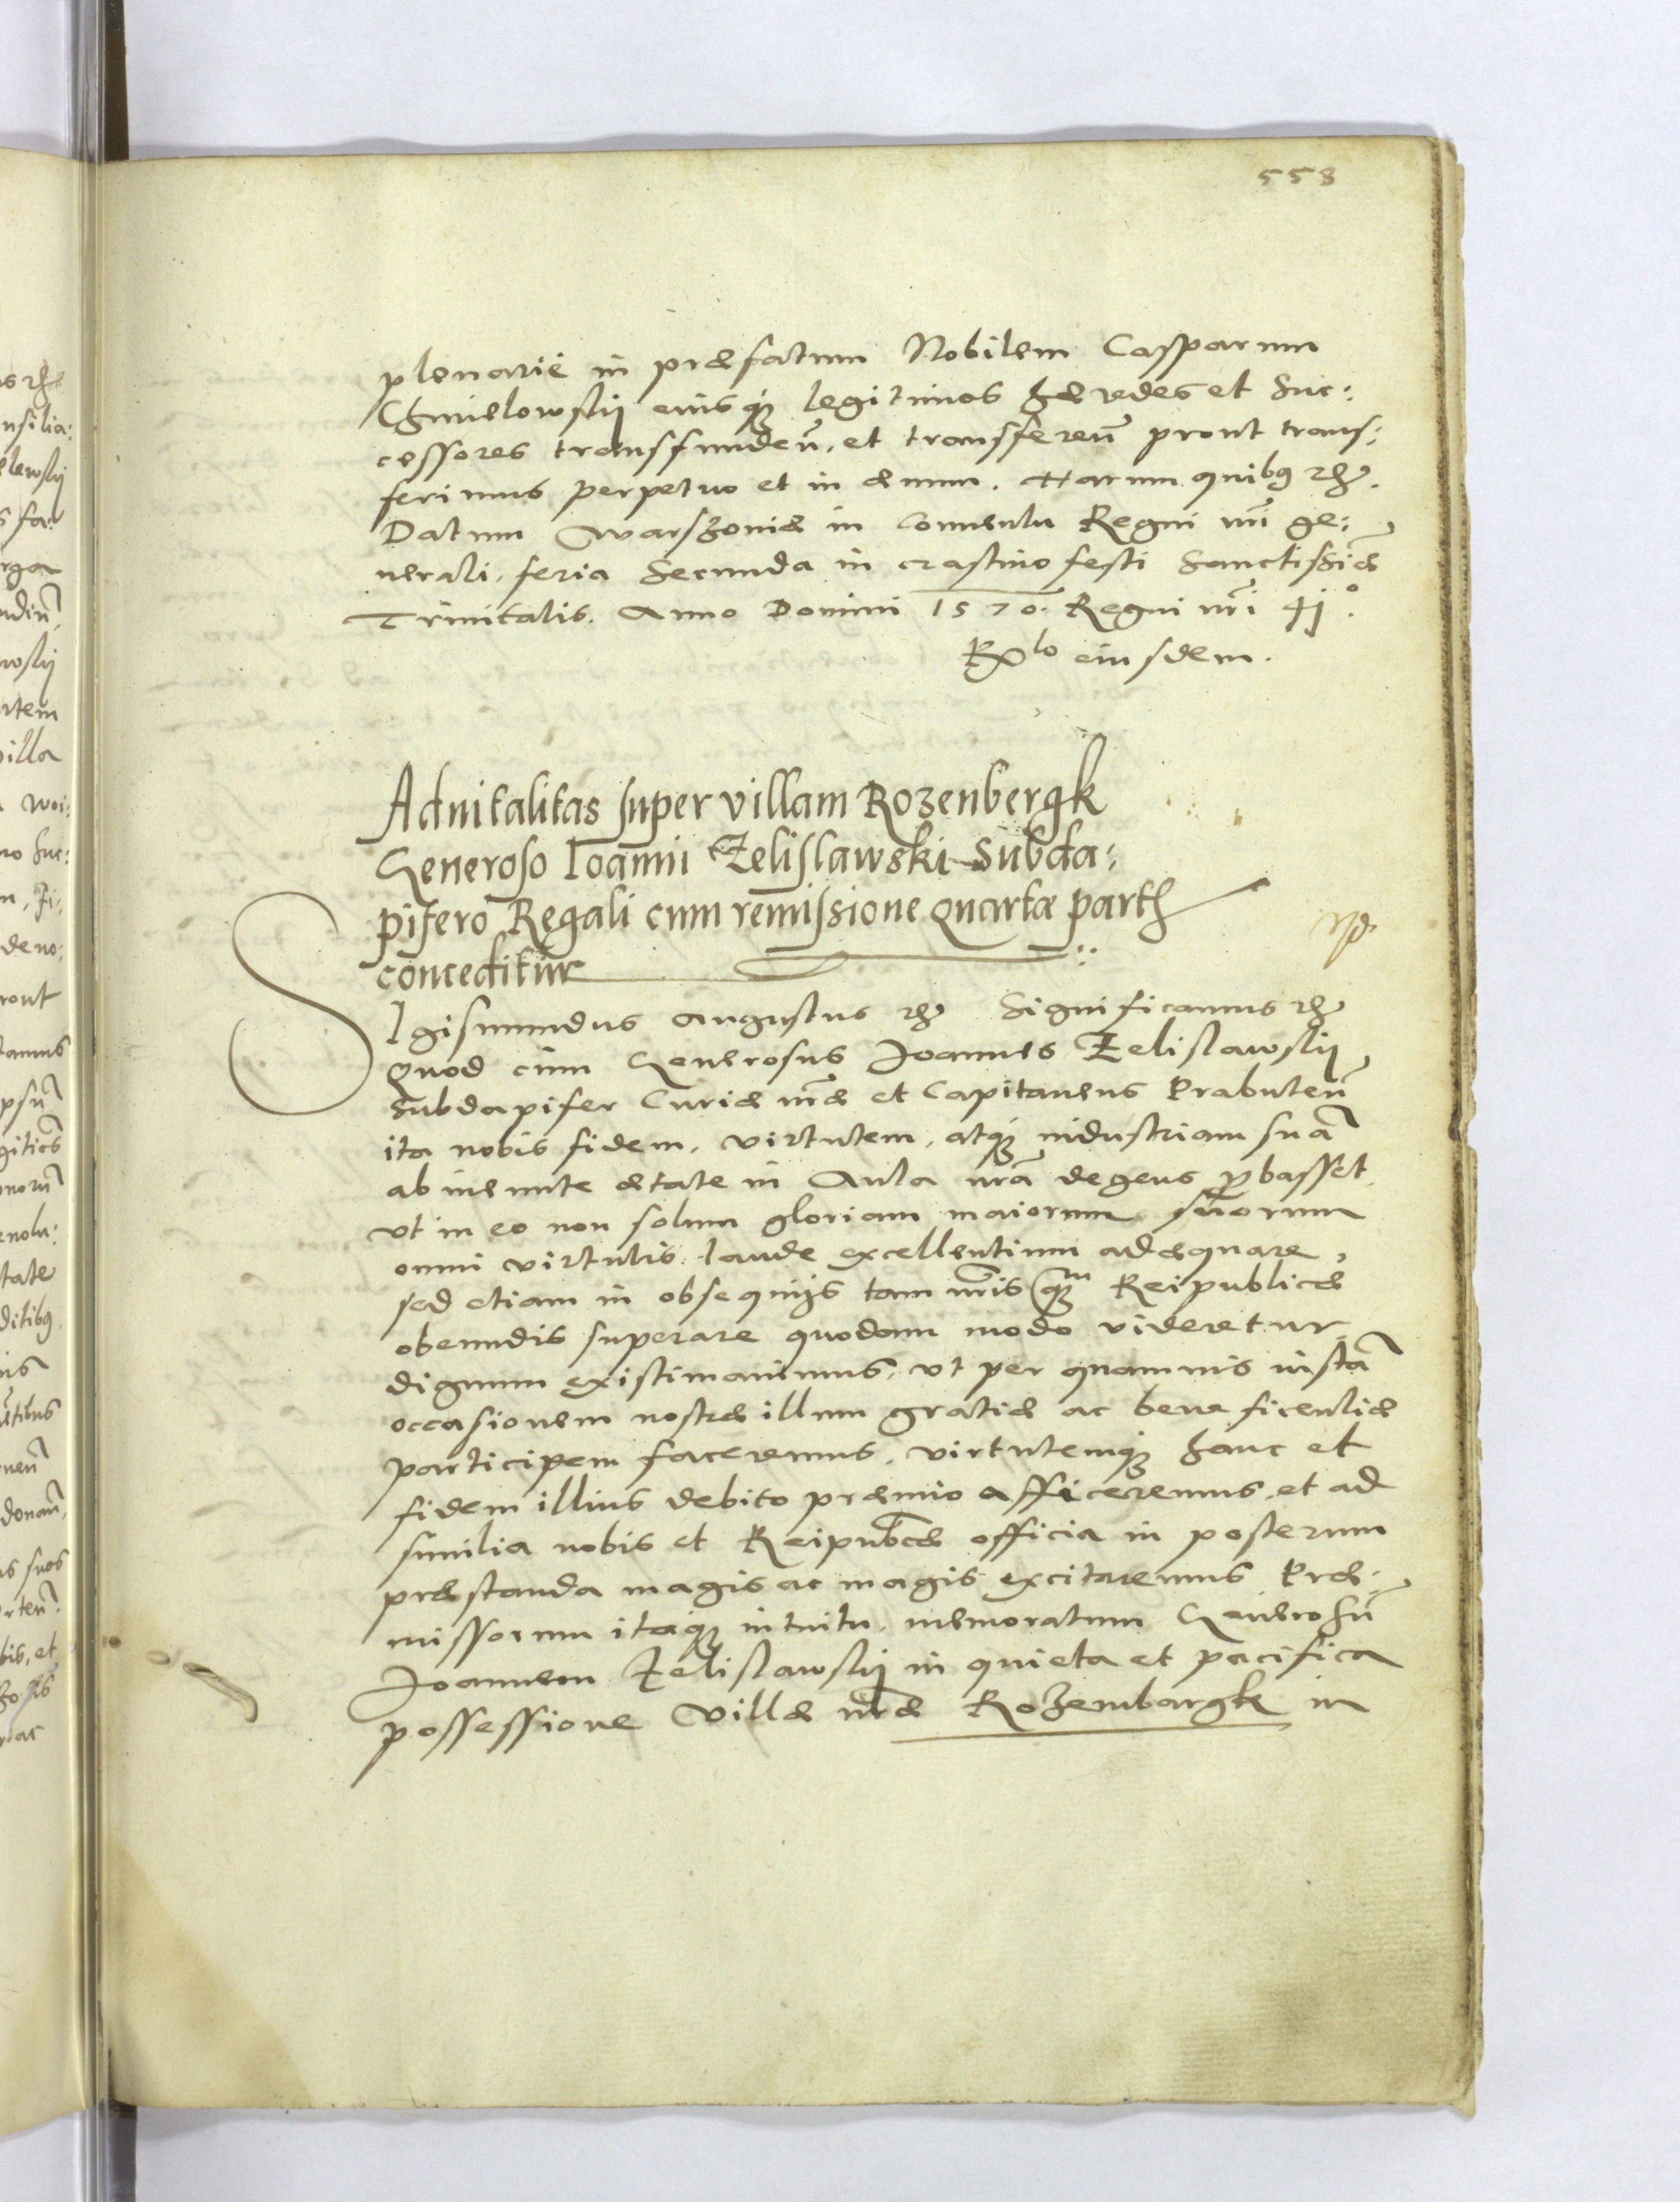 558
plenarie in præfatum Nobilem Casparum
Chmielowskij eiusq; legitimos hæredes et suc:
cessores transfunden̄. et transferen̄ prout trans:
ferimus perpetuo et in æuum. Harum quibus etc.
Datum Warszouiæ in Conuentu Regni nr̄i ge:
nerali, feria Secunda in crastino festi Sanctissi̅æ
Trinitatis. Anno Domini 1570. Regni nr̄i 41°.
Rlo eiusdem.
Aduitalitas super villam Rozenbergk
Generoso Ioanni Zelislawski Subda:
pifero Regali cum remissione quartæ partis
conceditur
SIgismundus Augustus etc. Significamus etc.
Quod cum Generosus Joannes Zelislawskij
Subdapifer Curiæ nr̄æ et Capitaneus Prabuten̄
ita nobis fidem, virtutem, atq; industriam suā
ab ineunte ætate in Aula nr̄a degens probasset
vt in eo non solum gloriam maiorum suorum
omni virtutis laude excellentium adæquare,
sed etiam in obsequijs tam nr̄is qm Reipublicæ
obeundis superare quodam modo videretur
dignum existimauimus, vt per quamuis iustā
occasionem nostræ illum gratiæ ac beneficentiæ
participem faceremus, virtutemq; hanc et
fidem illius debito præmio afficeremus, et ad
similia nobis et Reipubcæ officia in posterum
præstanda magis ac magis excitaremus. Præ:
missorum itaq; intuitu, memoratum Generosū
Joannem Zelislawskij in quieta et pacifica
possessione Villæ nr̄æ Rozembargk in